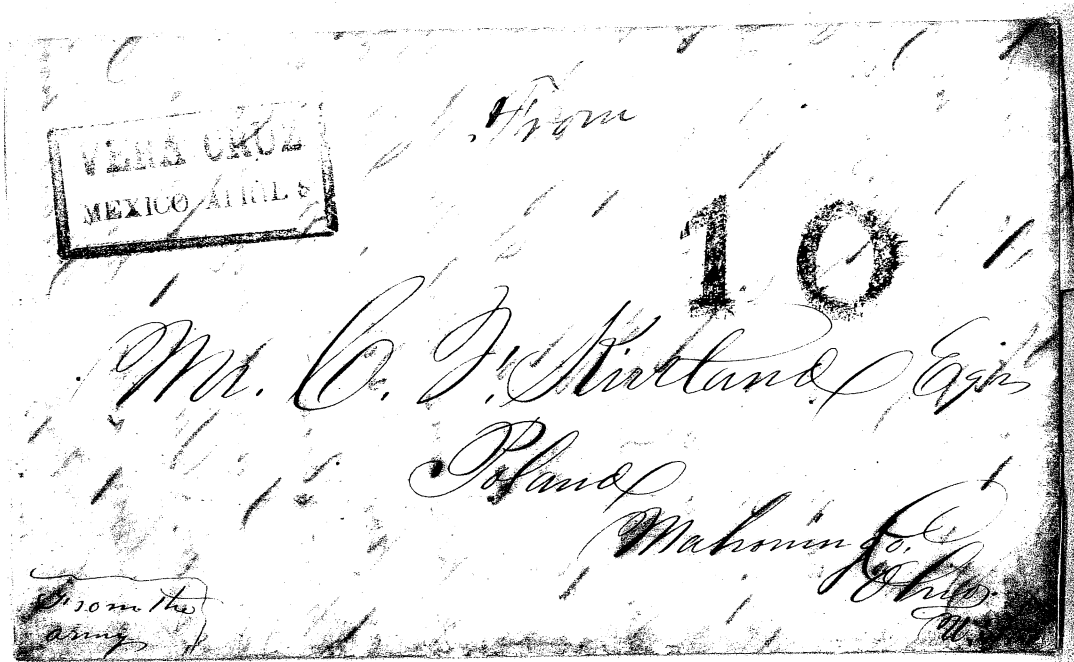 VERA CRUZ
MEXICO APRIL 8
From
10
Mr. C. F. Kirtland Esqr
Poland
Mahoning Co.
Ohio
U.
From the
army